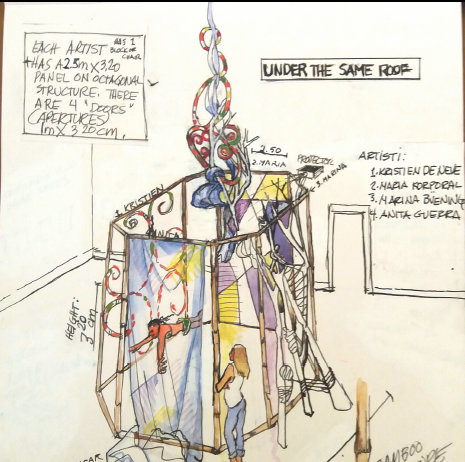 EACH ARTIST HAS 1
BLOCK OR
CHAIR
HAS A 2.5m X 3.20
PANEL ON OCTAGONAL
STRUCTURE. THERE
ARE 4 "DOORS"
(APERTURES)
1m X 3.20 cm,
UNDER THE SAME ROOF
2.50
2. MARIA
PROTECTOR
3. MARINA
ARTISTI:
1. KRISTIEN DE NEVE
2. MARIA KORPORAL
3. MARINA BUENING
4. ANITA GUERRA
1. KRISTIEN
ANITA
HEIGHT:
3.20
cm
BAMBOO